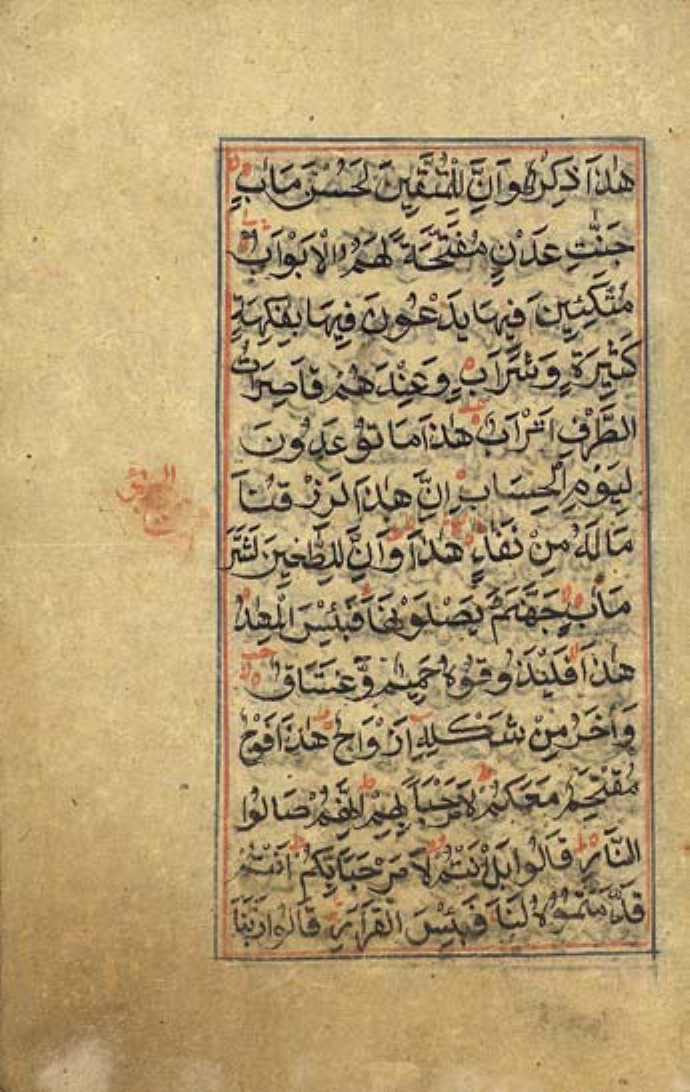 هٰذَا ذِكْرٌ وَاِنَّ لِلْمُتَّقِينَ لَحُسْنَ مَاٰبٍ
جَنّٰتِ عَدْنٍ مُفَتَّحَةً لَهُمُ الْاَبْوَابُ
مُتَّكِئِينَ فِيهَا يَدْعُونَ فِيهَا بِفَاكِهَةٍ
كَثِيرَةٍ وَشَرَابٍ وَعِنْدَهُمْ قَاصِرَاتُ
الطَّرْفِ اَتْرَابٌ هٰذَا مَا تُوعَدُونَ
لِيَوْمِ الْحِسَابِ اِنَّ هٰذَا لَرِزْقُنَا
مَالَهُ مِنْ نَفَادٍ هٰذَا وَاِنَّ لِلطّٰغِينَ لَشَرَّ
مَاٰبٍ جَهَنَّمَ يَصْلَوْنَهَا فَبِئْسَ الْمِهَادُ
هٰذَا فَلْيَذُوقُوهُ حَمِيمٌ وَّغَسَّاقٌ
وَاٰخَرُ مِنْ شَكْلِهِ اَزْوَاجٌ هٰذَا فَوْجٌ
مُقْتَحِمٌ مَعَكُمْ لَا مَرْحَبًا بِهِمْ اِنَّهُمْ صَالُوا
النَّارِ قَالُوا بَلْ اَنْتُمْ لَا مَرْحَبًا بِكُمْ اَنْتُمْ
قَدَّمْتُمُوهُ لَنَا فَبِئْسَ الْقَرَارُ قَالُوا رَبَّنَا